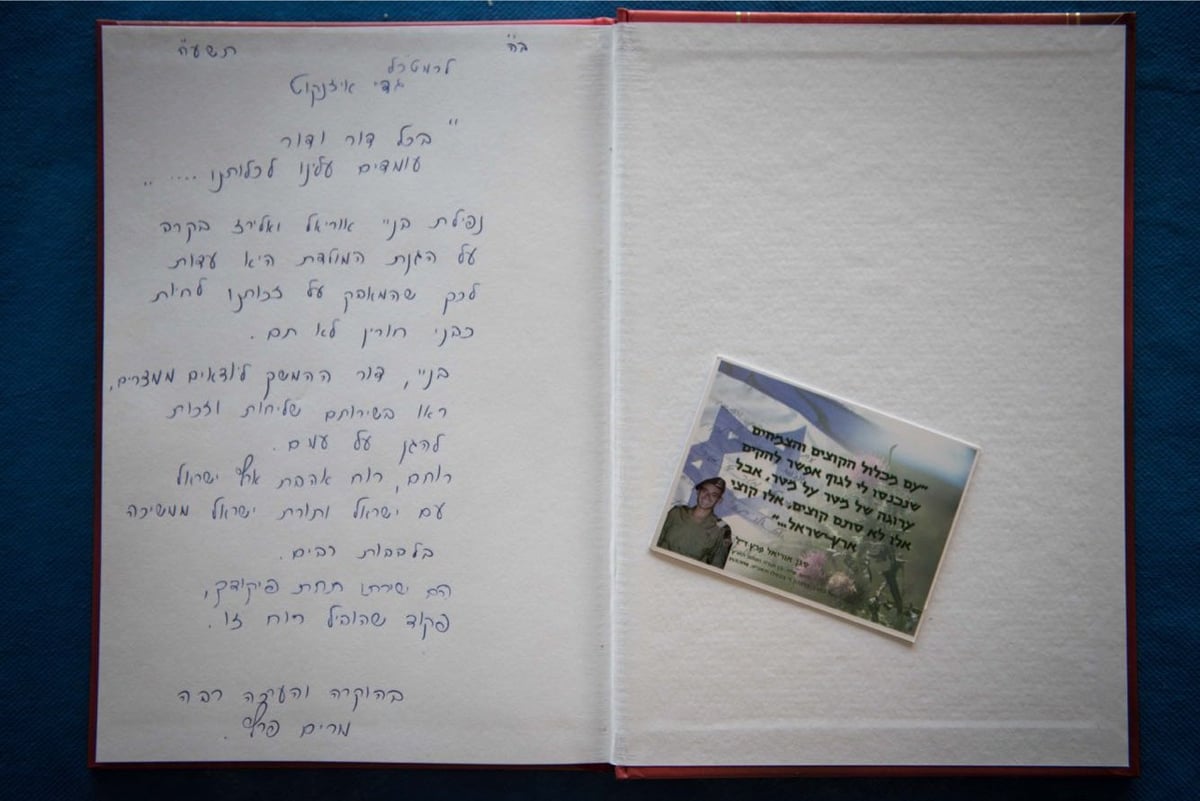 ב"ה תשע"ה
לרמטכ"ל
גדי איזנקוט
"בכל דור ודור
עומדים עלינו לכלותנו .... "
נפילת בניי אוריאל ואלירז בקרה
על הגנת המולדת היא עדות
לכך שהמאבק על זכותנו לחיות
כבני חורין לא תם.
בניי, דור ההמשק ליוצאים ממצרים,
ראו בשירותם שליחות וזכות
להגן על עמם.
רוחם, רוח אהבת ארץ ישראל
עם ישראל ותורת ישראל ממשיכה
בלבבות רבים.
הם שירתו תחת פיקודך,
פקוד שהוביל רוח זו.
בהוקרה והערכה רבה
מרים פרץ.
"עם מכלול הקוצים והצמחים
שנכנסו לי לגוף אפשר להקים
ערוגה של מטר על מטר, אבל
אלו לא סתם קוצים, אלו קוצי
ארץ-ישראל..."
סגן אוריאל פרץ הי"ד